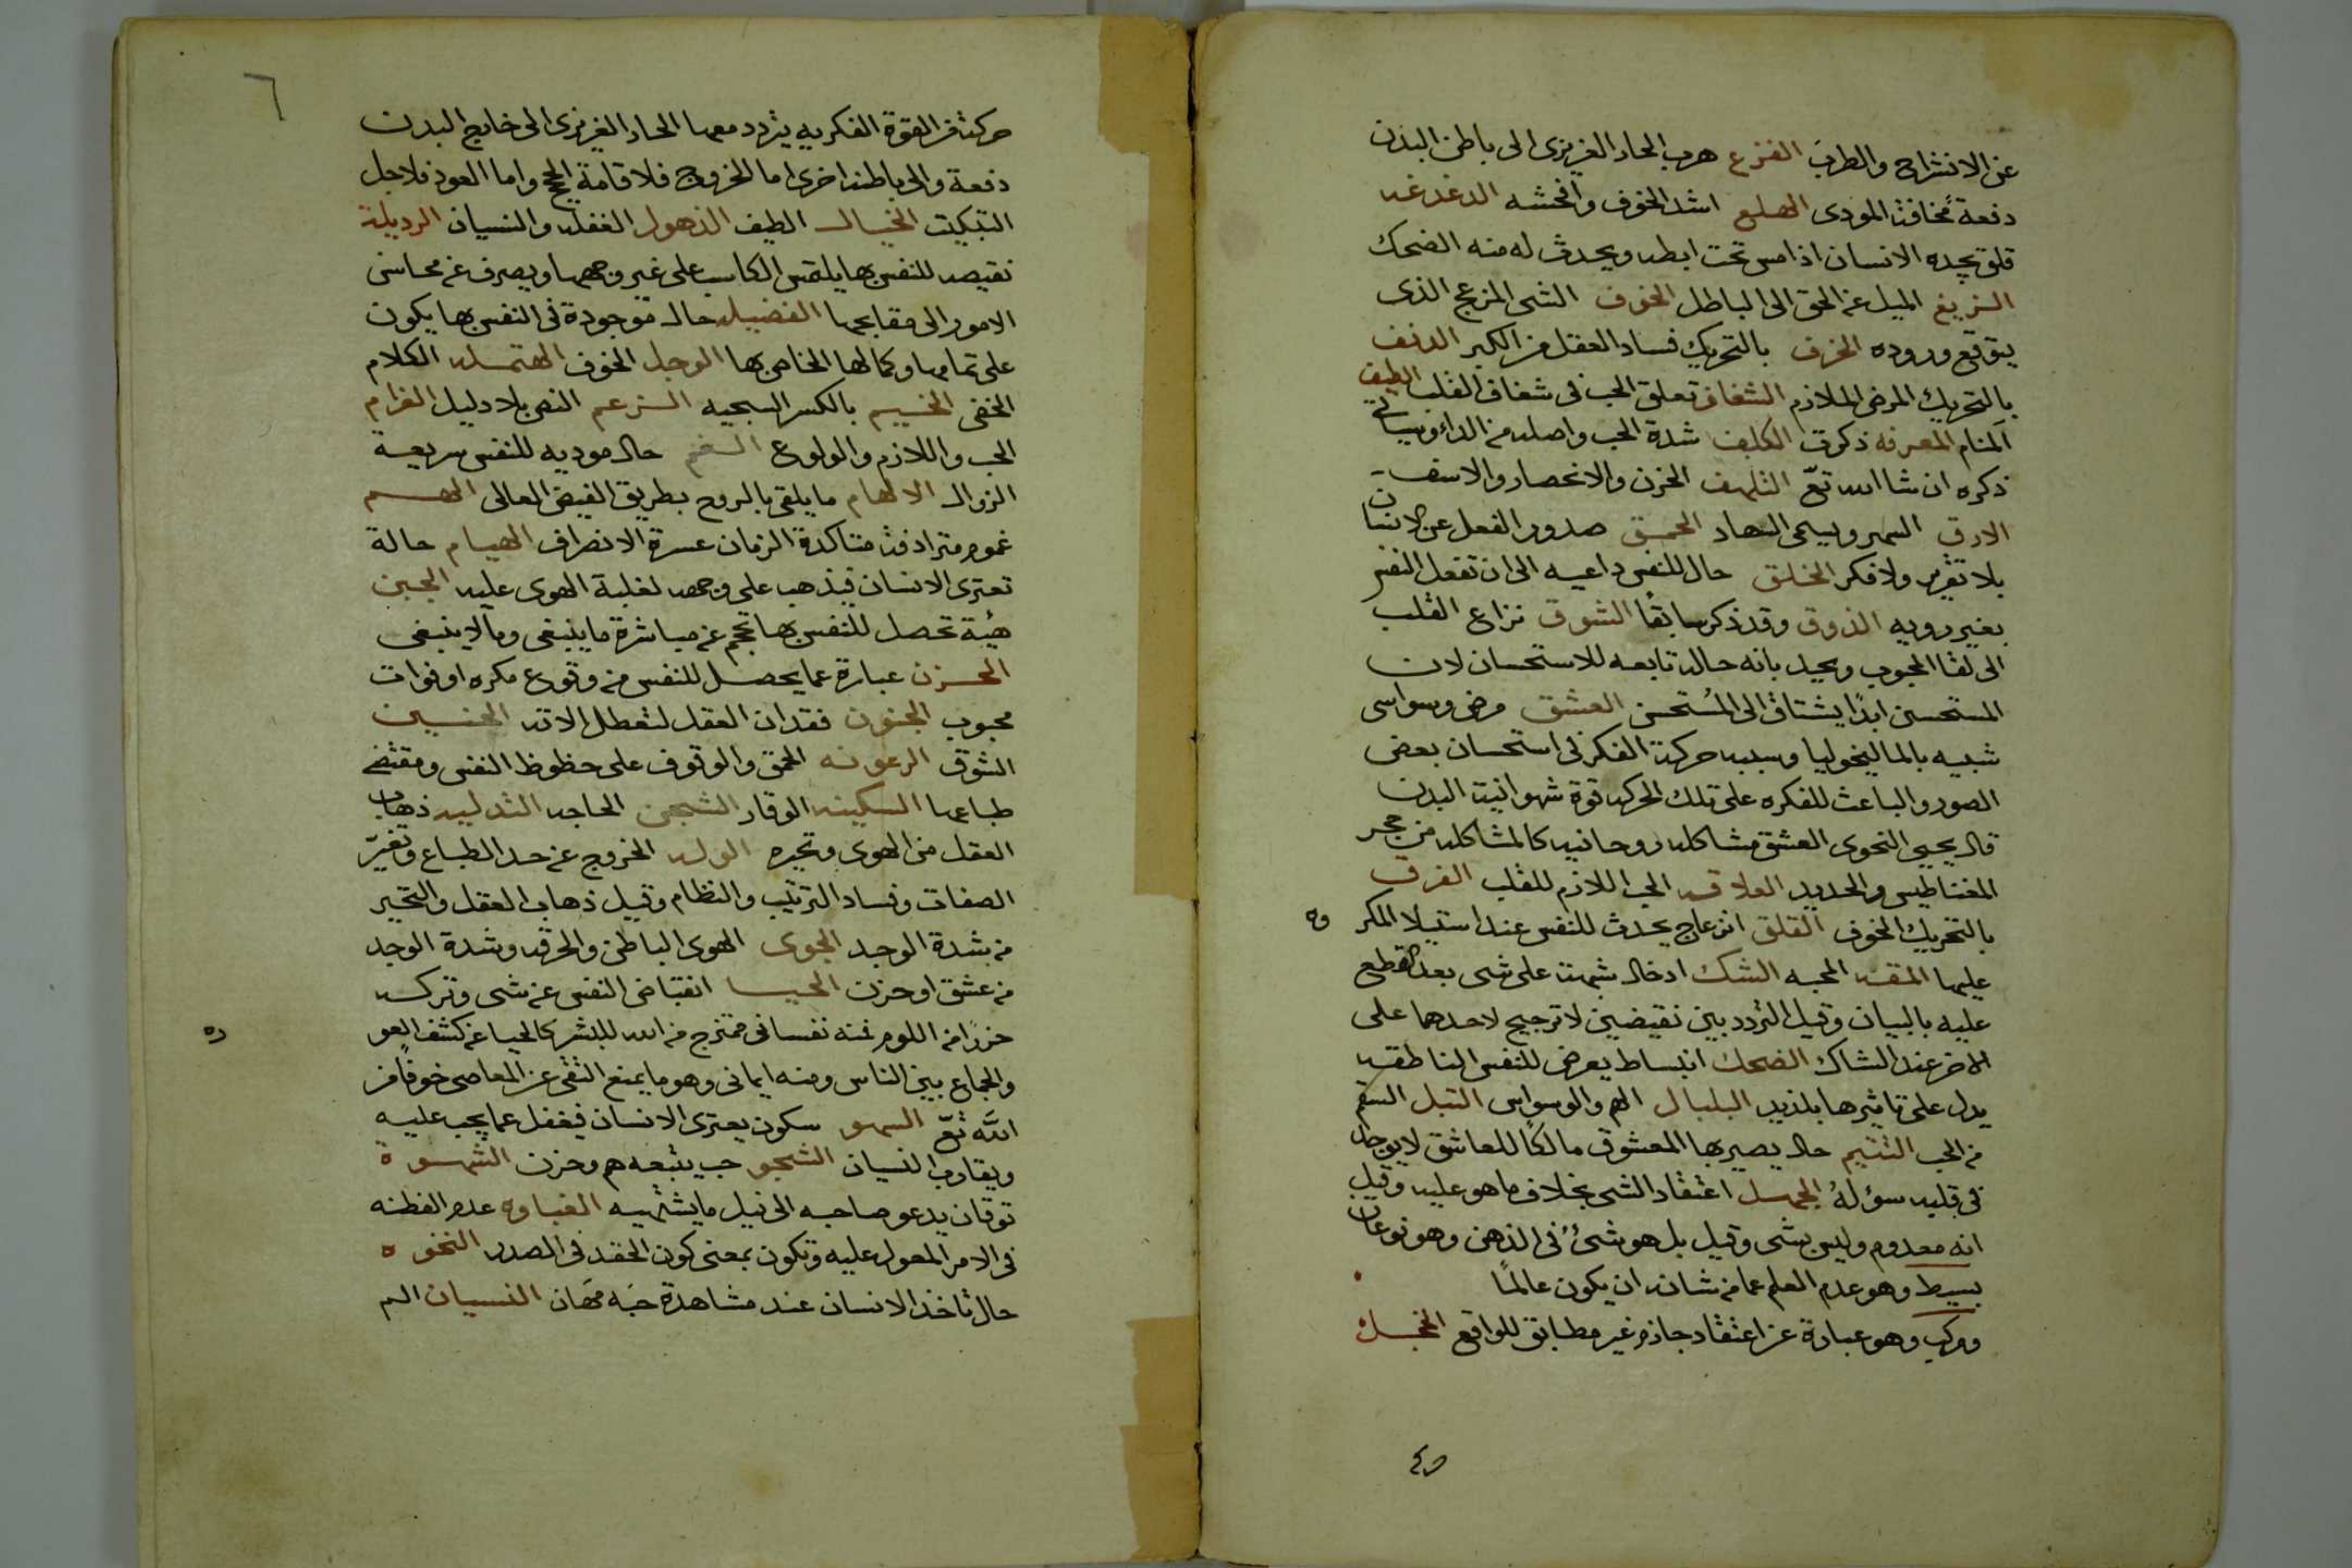 عن الانشراح والطرب الفزع هرب الحار الغريزى الى باطن البدن
دفعة مخافة المودى الهلع اشد الخوف وافحشه الدغدغه
قلق يجده الانسان اذا مس تحت ابطه ويحدث له منه الضحك
الزيغ الميل عن الحق الى الباطل الخوف الشى المزعج الذى
يتوقع وروده الخرف بالتحريك فساد العقل من الكبر الدنف
بالتحريك المرض الملازم الشغاف تعلق الحب فى شغاف القلب الطيف
المنام المعرفه ذكرت الكلف شدة الحب واصله من الداء وسياتى
ذكره ان شا الله تع التلهف الحزن والانحصار والاسف
الارق السهر ويسمى السهاد الحمق صدور الفعل عن الانسان
بلا تقرير ولا فكر الخلق حال للنفس داعيه الى ان تفعل النفس
بغير رويه الذوق وقد ذكر سابقًا الشوق نزاع القلب
الى لقا المحبوب ويحيل بانه حالة تابعه للاستحسان لان
المستحسن ابدًا يشتاق الى المُستحسن العشق مرض وسواسى
شبيه بالماليخوليا وسببه حركة الفكر فى استحسان بعض
الصور والباعث للفكره على تلك الحركه قوة شهوانية البدن
قال يحيى النحوى العشق مشاكله روحانيه كالمشاكله من حجر
المغناطيس والحديد العلاقه الحب اللازم للقلب الفرق
بالتحريك الخوف القلق انزعاج يحدث للنفس عند استيلا المكر وه
عليها المقه المحبه الشك ادخال شبهة على شى بعد القطع
عليه بالبيان وقيل التردد بين نقيضين لا ترجيح لاحدهما على
الاخر عند الشاك الضحك انبساط يعرض للنفس الناطقه
يدل على تاثيرها بلذيذ البلبال الهم والوسواس التبل السقم
من الحب التتيم حال يصير بها المعشوق مالكًا للعاشق لا يوجد
فى قلبه سؤلهُ الجهل اعتقاد الشى بخلاف ما هو عليه وقيل
انه معدوم وليس بشى وقيل بل هو شئ فى الذهن وهو نوعان
بسيط وهو عدم العلم عما من شانه ان يكون عالمًا
ومركب وهو عبارة عن اعتقاد جازم غير مطابق للواقع الخجل
٦
حركة فى القوة الفكريه يتردد معها الحار الغريزى الى خارج البدن
دفعة والى باطنه اخرى اما الخروج فلاقامة الحجج واما العود فلاجل
التبكيت الخيال الطيف الذهول الغفله والنسيان الرديلة
نقيصه للنفس بها يلتمس الكاسب على غير وجهها ويصرف عن محاسن
الامور الى مقابحها الفضيله حالة موجودة فى النفس بها يكون
على تمامها وكمالها الخاص بها الوجل الخوف الهتمله الكلام
الخفى الخيم بالكسر السجيه الزعم النص بلا دليل الغرام
الحب واللازم والولوع الغم حال موديه للنفس سريعة
الزوال الالهام ما يلقى بالروح بطريق الفيض العالى الهم
غموم مترادفة متاكدة الزمان عسرة الانصراف الهيام حالة
تعترى الانسان فيذهب على وجهه لغلبة الهوى عليه الجبن
هيئة تحصل للنفس بها تحجم عن مباشرة ما ينبغى وما لا ينبغى
الحزن عبارة عما يحصل للنفس من وقوع مكره او فوات
محبوب الجنون فقدان العقل لتعطل الاته الحنين
الشوق الرعونه الحمق والوقوف على حظوظ النفس ومقتضى
طباعها السكينه الوقار الشجن الحاجه التدليه ذهاب
العقل من الهوى وتحيره الوله الخروج عن حد الطباع وتغيّر
الصفات وفساد الترتيب والنظام وقيل ذهاب العقل والتحير
من شدة الوجد الجوى الهوى الباطن والحرقه وشدة الوجد
من عشق او حزن الحيا انقباض النفس عن شى وتركه
حذرًا من اللوم فمنه نفسانى ممتزج من الله للبشر كالحيا عن كشف العو ره
والجماع بين الناس ومنه ايمانى وهو ما يمنع التقى عن المعاصى خوفًا من
الله تع السهو سكون يعترى الانسان فيغفل عما يجب عليه
ويقارب النسيان الشجو حب يتبعه هم وحزن الشهوة
توقان يدعو صاحبه الى نيل ما يشتهيه الغباوه عدم الفطنه
فى الامر المعول عليه وتكون بمعنى كون الحقد فى الصدر النخوه
حال تاخذ الانسان عند مشاهدة حبه مهان النسيان الم